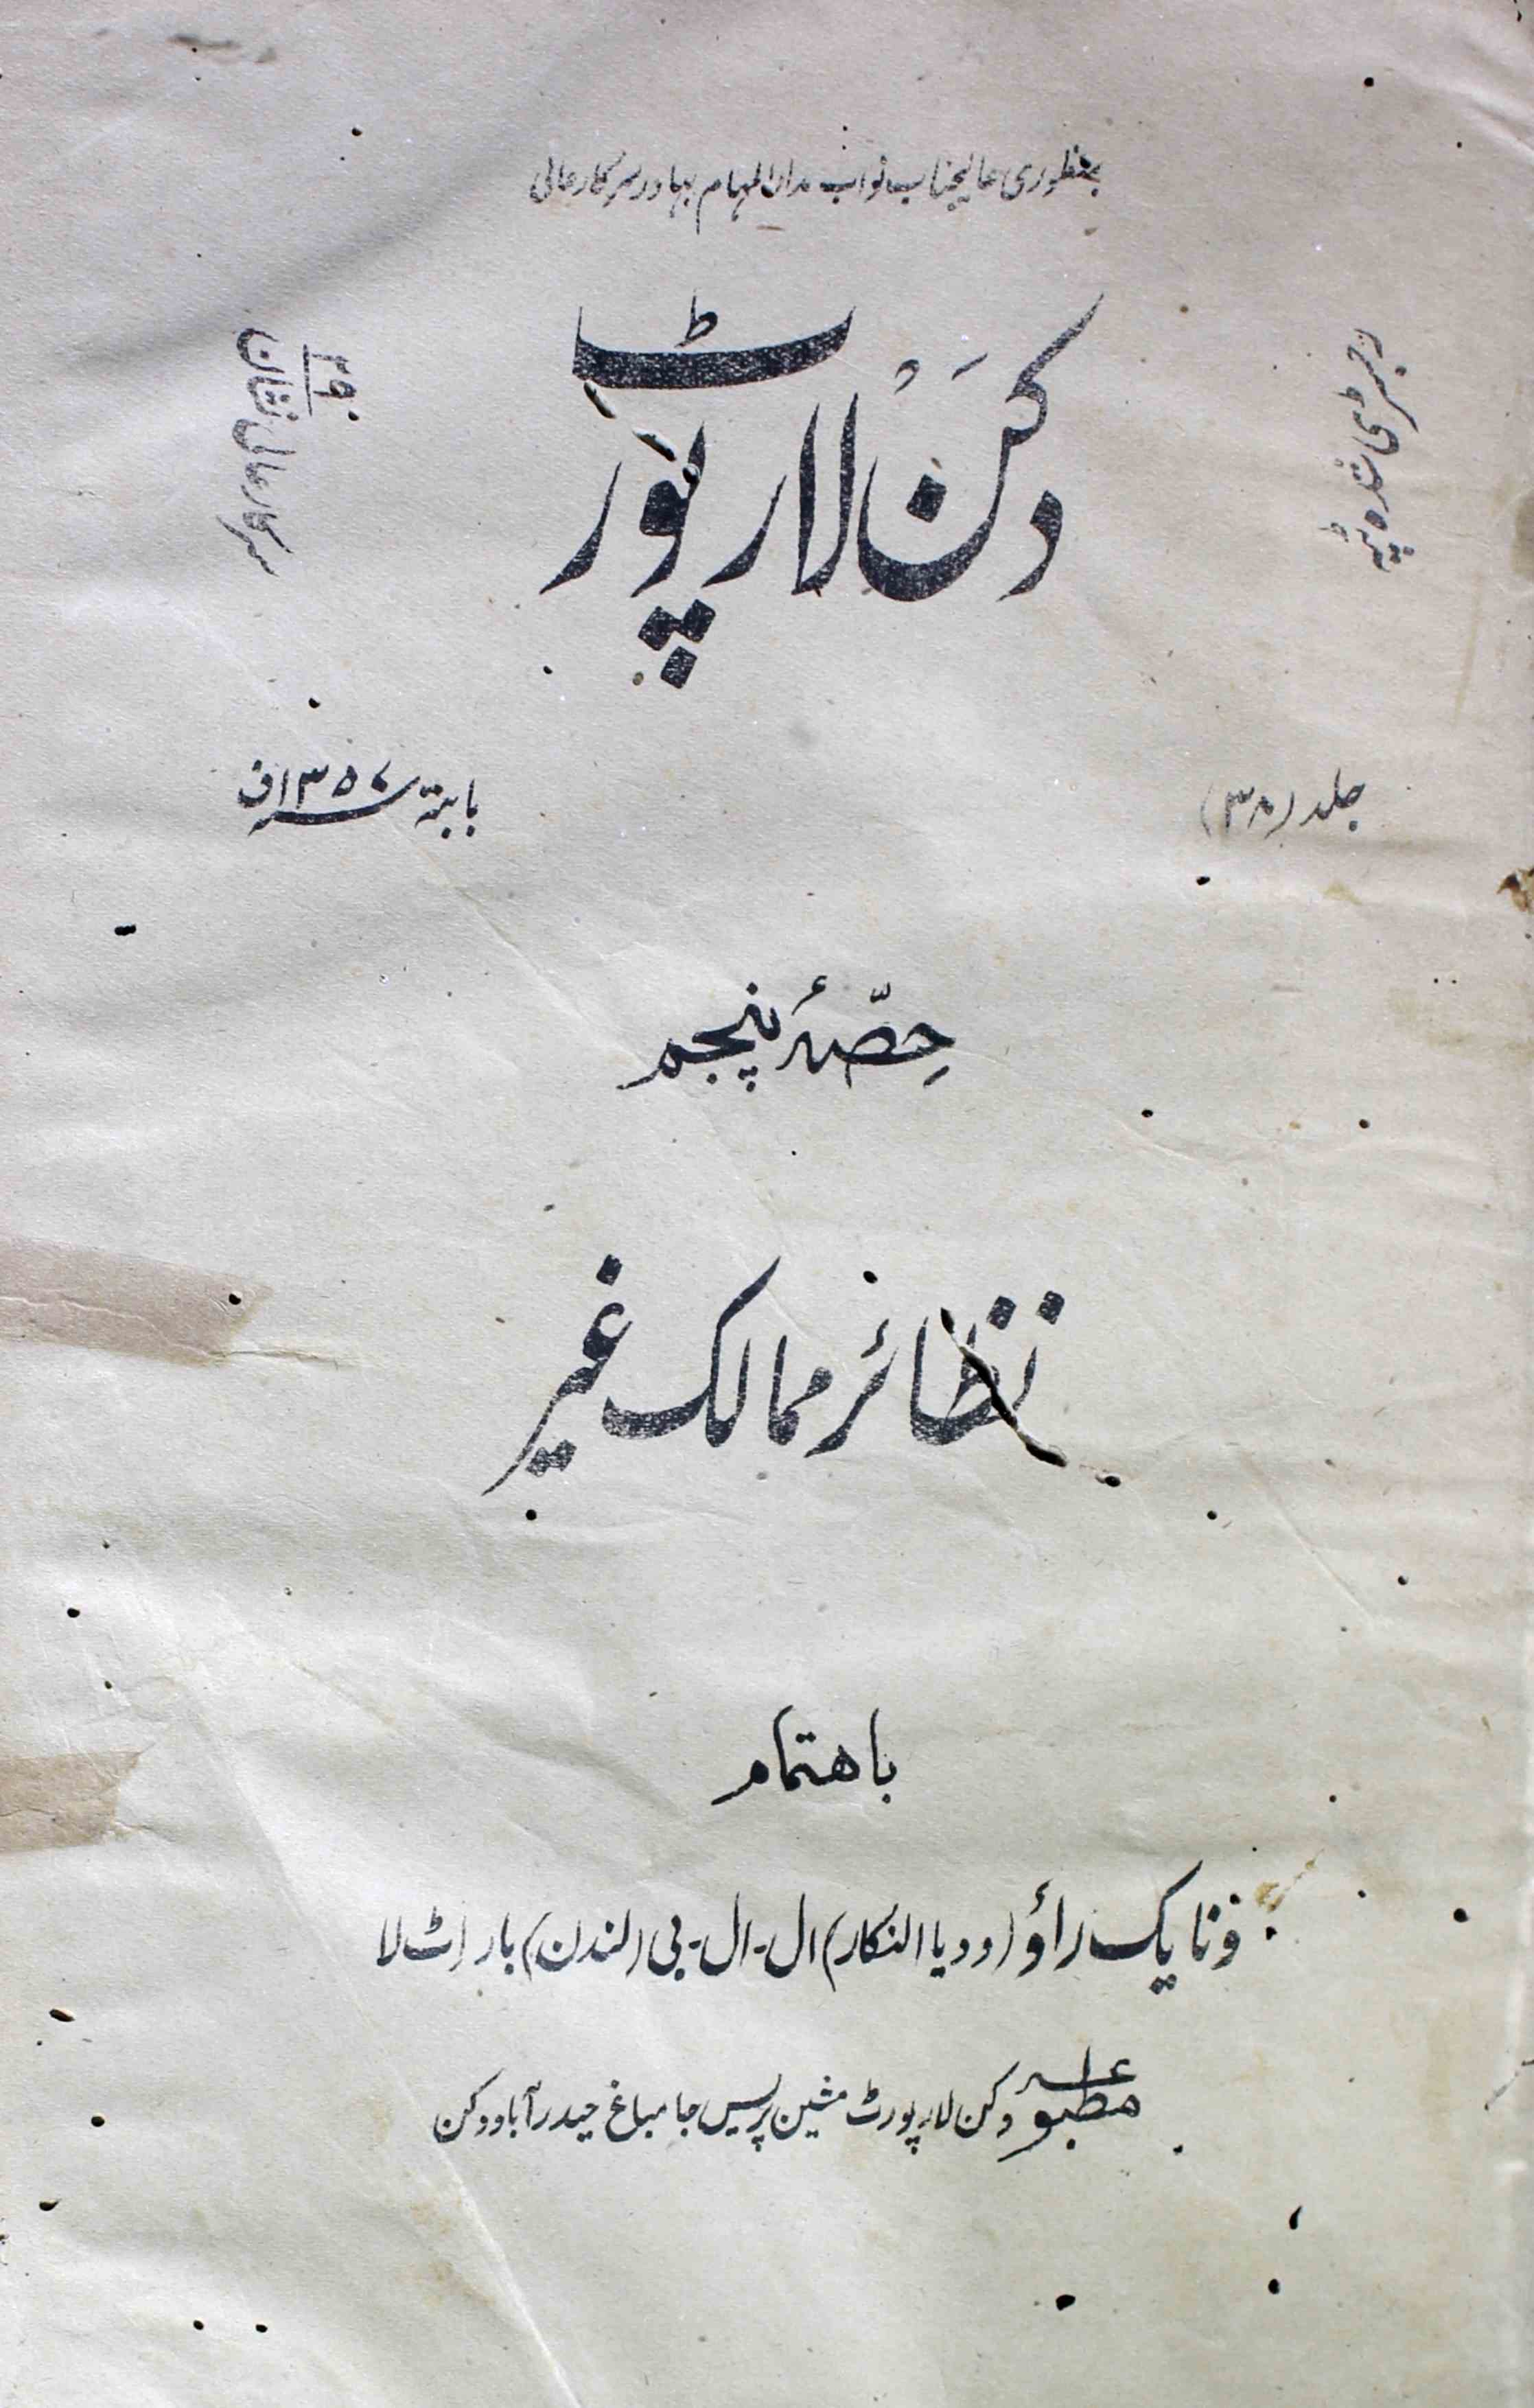 بمنظوری عالیجناب نواب مدارالمہام بہادر سرکار عالی
رجسٹری شدہ پٹہ
دکن لا رپورٹ
سرکار عالی نشان ۲۹۰
جلد (۳۸)
بابتہ ۱۳۵۷ف
حصّۂ پنجم
نظائر ممالک غیر
باهتمام
ونایک راؤ (ودیا النکار) ال-ال-بی (لندن) بار اٹ لا
مطبوعہ دکن لا رپورٹ مشین پریس جامباغ حیدرآباد دکن